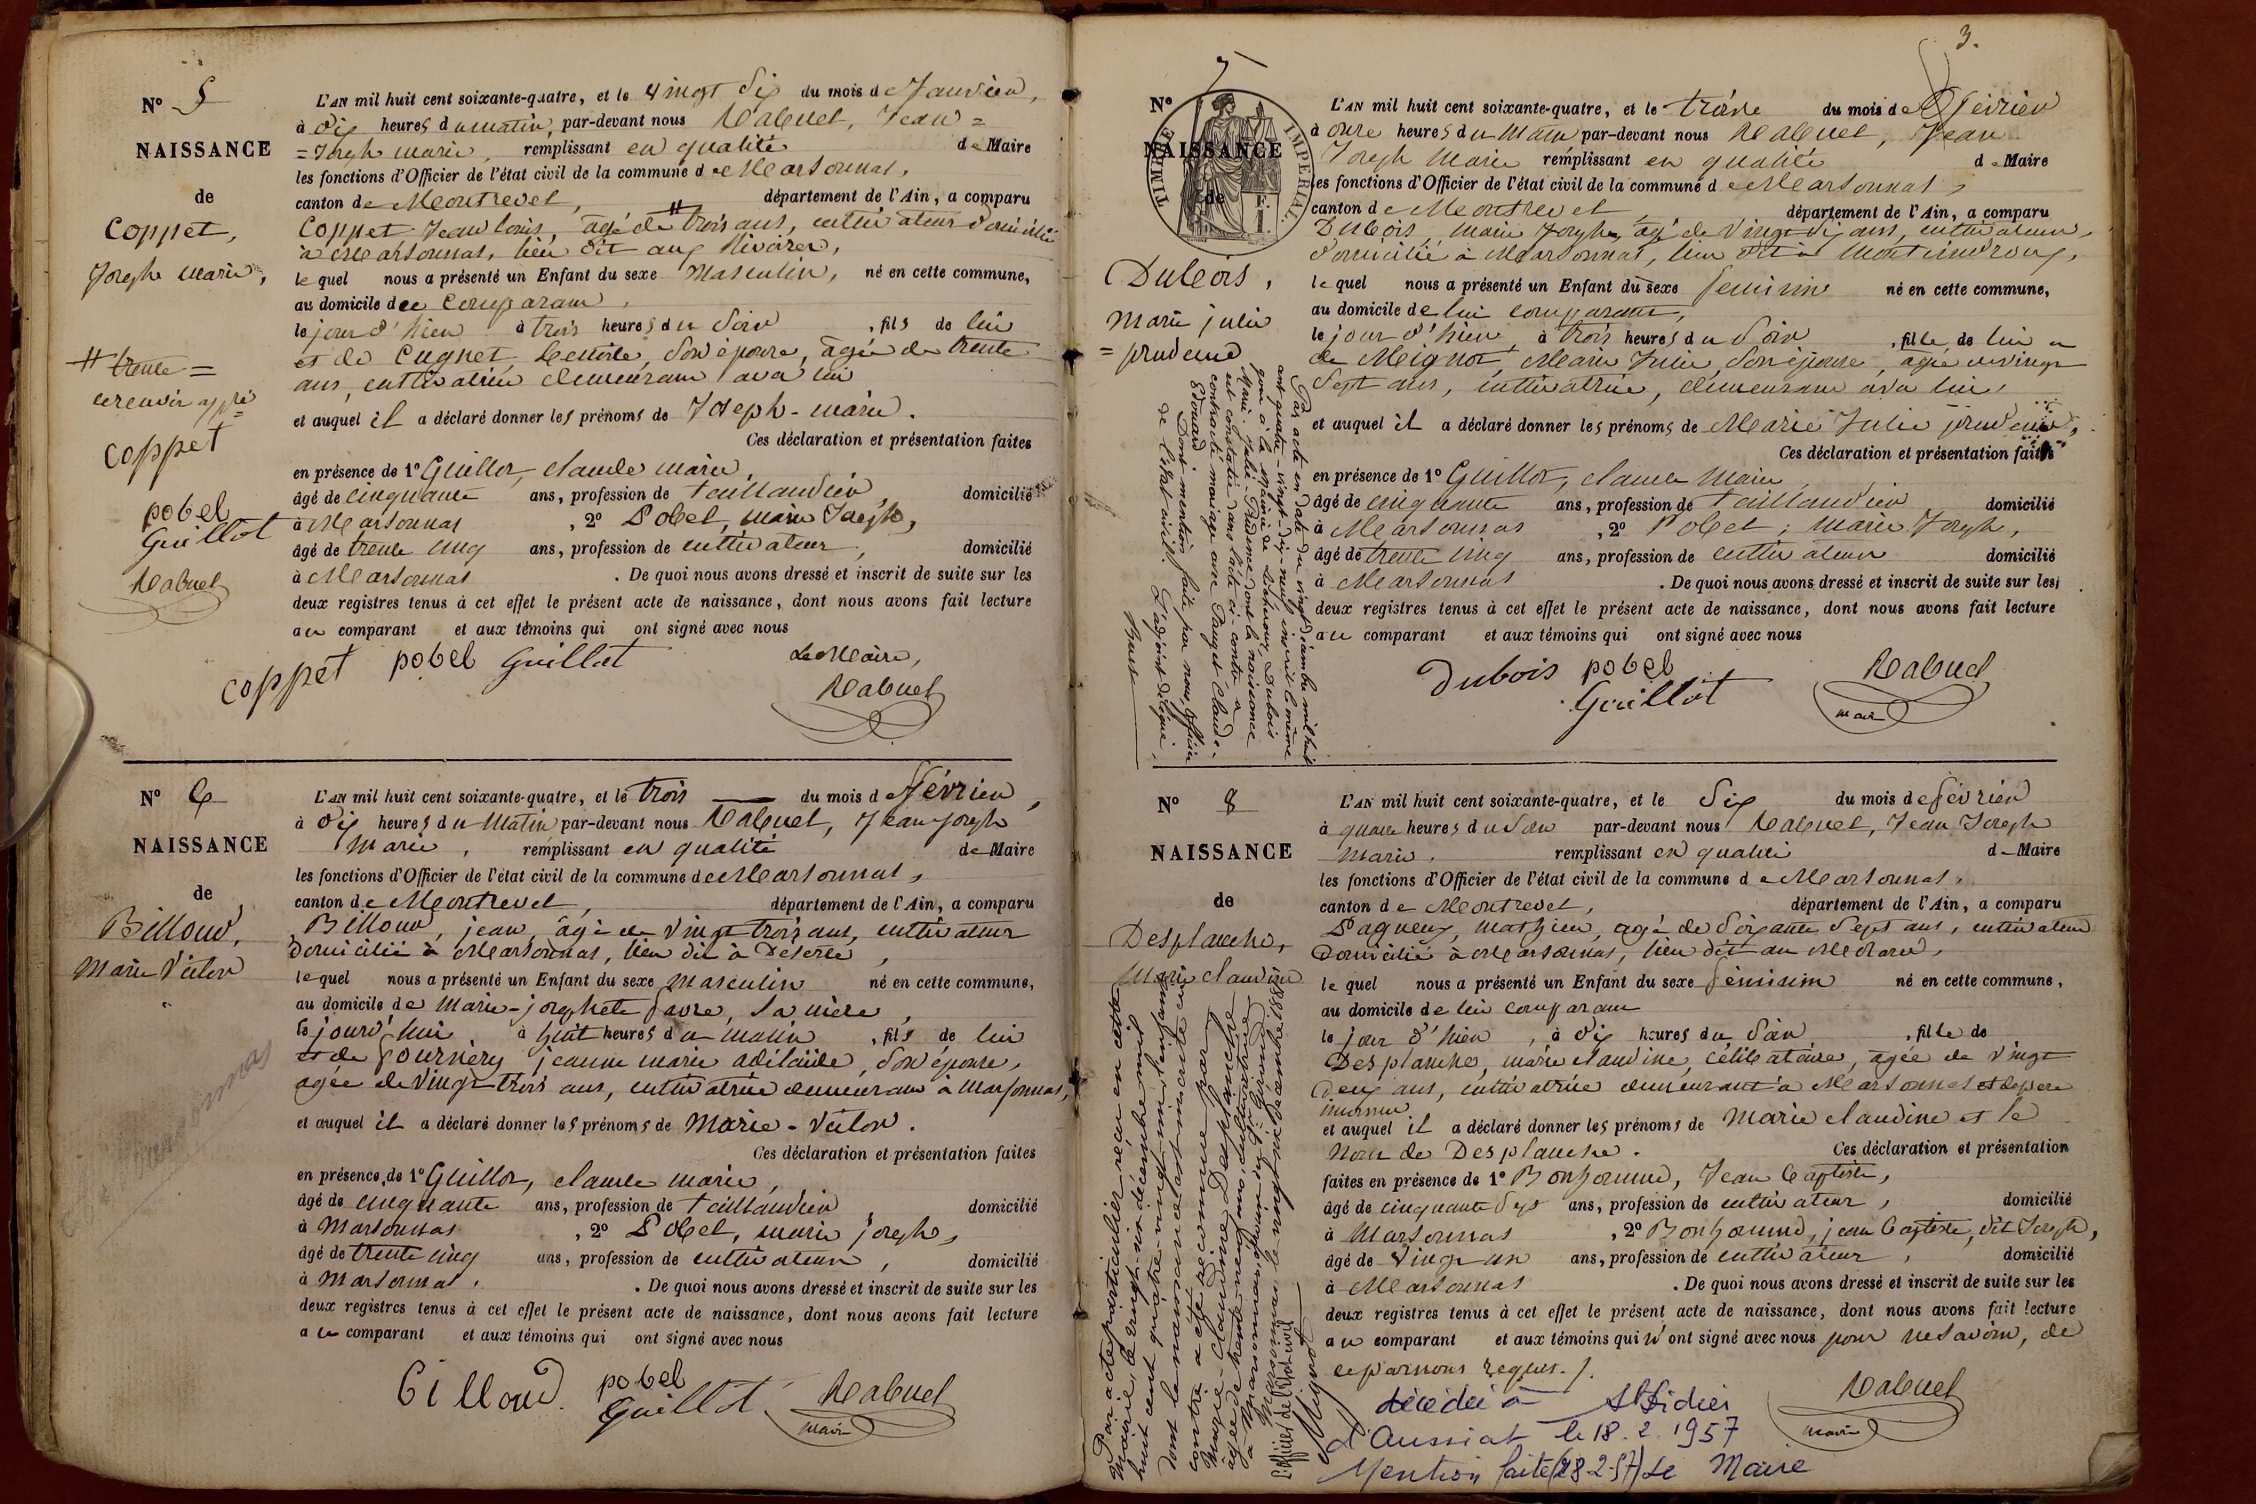 N° 5
NAISSANCE
de
Coppet,
Joseph marie,
# trente =
le renvoi appr
coppet
pobel
Guillot
Rabuel
L'AN mil huit cent soixante-quatre, et le vingt Six du mois de Janvier,
à dix heures du matin, par-devant nous Rabuel, Jean =
= Joseph marie, remplissant en qualité de Maire
les fonctions d'Officier de l'état civil de la commune de Marsonnas,
canton de Montrevel, département de l'Ain, a comparu
Coppet Jean louis, agé de # trois ans, cultivateur domicilié
à Marsonnas, lieu dit aux Rivoires,
lequel nous a présenté un Enfant du sexe masculin, né en cette commune,
au domicile de ce comparant,
le jour d'hier à trois heures du Soir, fils de lui
et de Cugnet, son épouse, âgée de trente
ans, cultivatrice demeurant avec lui
et auquel il a déclaré donner les prénoms de Joseph-marie.
Ces déclaration et présentation faites
en présence de 1° Guillot, claude marie,
âgé de cinquante ans, profession de taillandier, domicilié
à Marsonnas, 2° Pobel, marie Joseph,
âgé de trente cinq ans, profession de cultivateur, domicilié
à Marsonnas. De quoi nous avons dressé et inscrit de suite sur les
deux registres tenus à cet effet le présent acte de naissance, dont nous avons fait lecture
au comparant et aux témoins qui ont signé avec nous
Le Maire,
coppet pobel Guillot Rabuel
N° 6
NAISSANCE
de
Billoud,
Marie Victor
L'AN mil huit cent soixante-quatre, et le trois du mois de février,
à dix heures du Matin par-devant nous Rabuel, Jean Joseph
Marie, remplissant en qualité de Maire
les fonctions d'Officier de l'état civil de la commune de Marsonnas,
canton de Montrevel, département de l'Ain, a comparu
Billoud, jean, âgé de vingt trois ans, cultivateur
domicilié à Marsonnas, lieu dit à Deserte,
lequel nous a présenté un Enfant du sexe masculin né en cette commune,
au domicile de marie-josephete favre, sa mère,
le jourd'hui à huit heures du matin, fils de lui
et de fournery jeanne marie adélaïde, son épouse,
agée de vingt trois ans, cultivatrice demeurant à Marsonnas,
et auquel il a déclaré donner les prénoms de Marie-Victor.
Ces déclaration et présentation faites
en présence de 1° Guillot, claude marie,
âgé de cinquante ans, profession de taillandier, domicilié
à Marsonnas, 2° Pobel, marie joseph,
âgé de trente cinq ans, profession de cultivateur, domicilié
à Marsonnas. De quoi nous avons dressé et inscrit de suite sur les
deux registres tenus à cet effet le présent acte de naissance, dont nous avons fait lecture
au comparant et aux témoins qui ont signé avec nous
billoud pobel Guillot Rabuel
maire
3.
N° 7
TIMBRE IMPERIAL
NAISSANCE
de
Dubois,
Marie julie
= prudence
L'AN mil huit cent soixante-quatre, et le treize du mois de février
à onze heures du Matin par-devant nous Rabuel, Jean
Joseph Marie remplissant en qualité de Maire
les fonctions d'Officier de l'état civil de la commune de Marsonnas,
canton de Montrevel, département de l'Ain, a comparu
Dubois, marie Joseph, agé de vingt six ans, cultivateur,
domicilié à Marsonnas, lieu dit à Montimbroux,
lequel nous a présenté un Enfant du sexe feminin né en cette commune,
au domicile de lui comparant,
le jour d'hier, à trois heures du Soir, fille de lui et
de Mignot, Marie Julie, son épouse, agée de vingt
Sept ans, cultivatrice, demeurant avec lui,
et auquel il a déclaré donner les prénoms de Marie Julie prudence,
Ces déclaration et présentation faites
en présence de 1° Guillot, claude Marie
âgé de cinquante ans, profession de taillandier domicilié
à Marsonnas, 2° Pobel, Marie Joseph,
âgé de trente cinq ans, profession de cultivateur domicilié
à Marsonnas. De quoi nous avons dressé et inscrit de suite sur les
deux registres tenus à cet effet le présent acte de naissance, dont nous avons fait lecture
au comparant et aux témoins qui ont signé avec nous
Dubois pobel Rabuel
Guillot
maire
Par acte en date du vingt décembre mil huit
cent quatre-vingt-dix-neuf inscrit le même
jour à la Mairie de Dubois
Marie-Julie-Prudence dont la naissance
est constatée dans l'acte ci-contre a
contracté mariage avec Pauget Claude-
Edouard
Dont mention faite par nous, officier
de l'Etat civil. L'adjoint délégué,
N° 8
NAISSANCE
de
Desplanche,
Marie claudine
L'AN mil huit cent soixante-quatre, et le Six du mois de février
à quatre heures du Soir par-devant nous Rabuel, Jean Joseph
marie, remplissant en qualité de Maire
les fonctions d'Officier de l'état civil de la commune de Marsonnas,
canton de Montrevel, département de l'Ain, a comparu
Pagneux, Mathieu, agé de Soixante Sept ans, cultivateur
domicilié à Marsonnas, lieu dit au
lequel nous a présenté un Enfant du sexe féminin né en cette commune,
au domicile de lui comparant
le jour d'hier, à dix heures du Soir, fille de
Desplanche, marie claudine, célibataire, agée de vingt
Deux ans, cultivatrice demeurant à Marsonnas et de père
inconnu
et auquel il a déclaré donner les prénoms de Marie claudine et le
Nom de Desplanche. Ces déclaration et présentation
faites en présence de 1° Bonhomme, Jean baptiste,
âgé de cinquante Sept ans, profession de cultivateur, domicilié
à Marsonnas, 2° Bonhomme, jean baptiste, dit Joseph,
âgé de vingt un ans, profession de cultivateur, domicilié
à Marsonnas. De quoi nous avons dressé et inscrit de suite sur les
deux registres tenus à cet effet le présent acte de naissance, dont nous avons fait lecture
au comparant et aux témoins qui n'ont signé avec nous pour ne savoir, de
ce par nous requis.
Rabuel
maire
Par acte particulier reçu en cette
Mairie, le vingt-six décembre mil
huit cent quatre-vingt-cinq, l'enfant
dont la naissance est inscrite ci-
contre a été reconnue par
Marie-Claudine Desplanche
âgée de trente neuf ans, cultivatrice
Marsonnas le vingt six décembre 1885
l'officier de l'Etat-civil
Mignot
décédée à St Didier
d'Aussiat le 18.2.1957
Mention faite (28-2-57) Le Maire